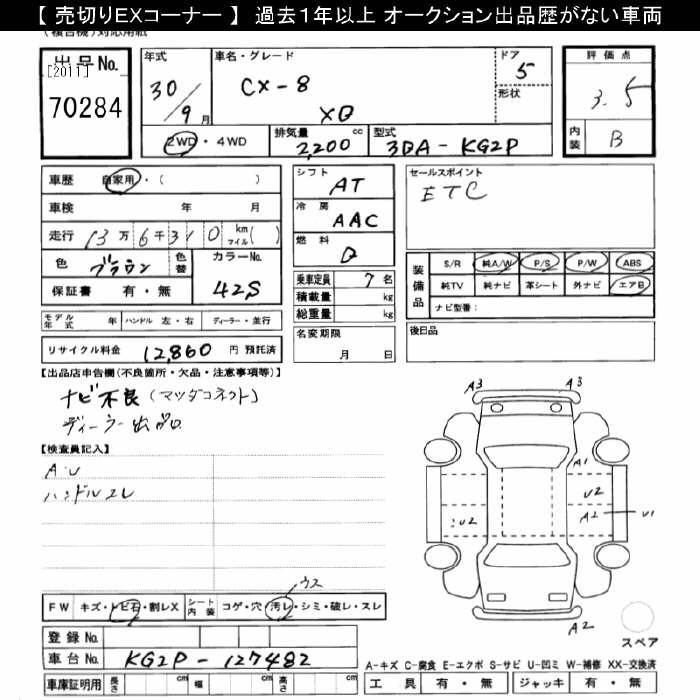 【 売切りEXコーナー 】 過去1年以上 オークション出品歴がない車両
出品No.
[2011]
70284
年式
30/9月
車名・グレード
CX-8
XD
ドア
5
形状
評価点
3.5
内装
B
2WD・4WD
排気量
2,200
cc
型式
3DA-KG2P
車歴 自家用・( )
車検 年 月
走行 13万6千310 km マイル( )
色 ブラウン 色替
カラーNo.
42S
保証書 有・無
モデル年式 年 ハンドル 左・右 ディーラー・並行
リサイクル料金 12,860 円 預託済
シフト
AT
冷房
AAC
燃料
D
乗車定員 7 名
積載量 kg
総重量 kg
名変期限
月 日
セールスポイント
ETC
装備品
S/R 純A/W P/S P/W ABS
純TV 純ナビ 革シート 外ナビ エアB
ナビ型番:
後日品
【出品店申告欄(不良箇所・欠品・注意事項等)】
ナビ不良(マツダコネクト)
ディーラー出品
【検査員記入】
A・U
ハンドルスレ
A3
A3
A1
U2
A2
U1
U2
A2
スペア
ウス
FW キズ・トビ石・割レX シート内装 コゲ・穴 汚レ・シミ・破レ・スレ
登録No.
車台No. KG2P-127482
車庫証明用 長さ cm 幅 cm 高さ cm
A-キズ C-腐食 E-エクボ S-サビ U-凹ミ W-補修 XX-交換済
工具 有・無 ジャッキ 有・無